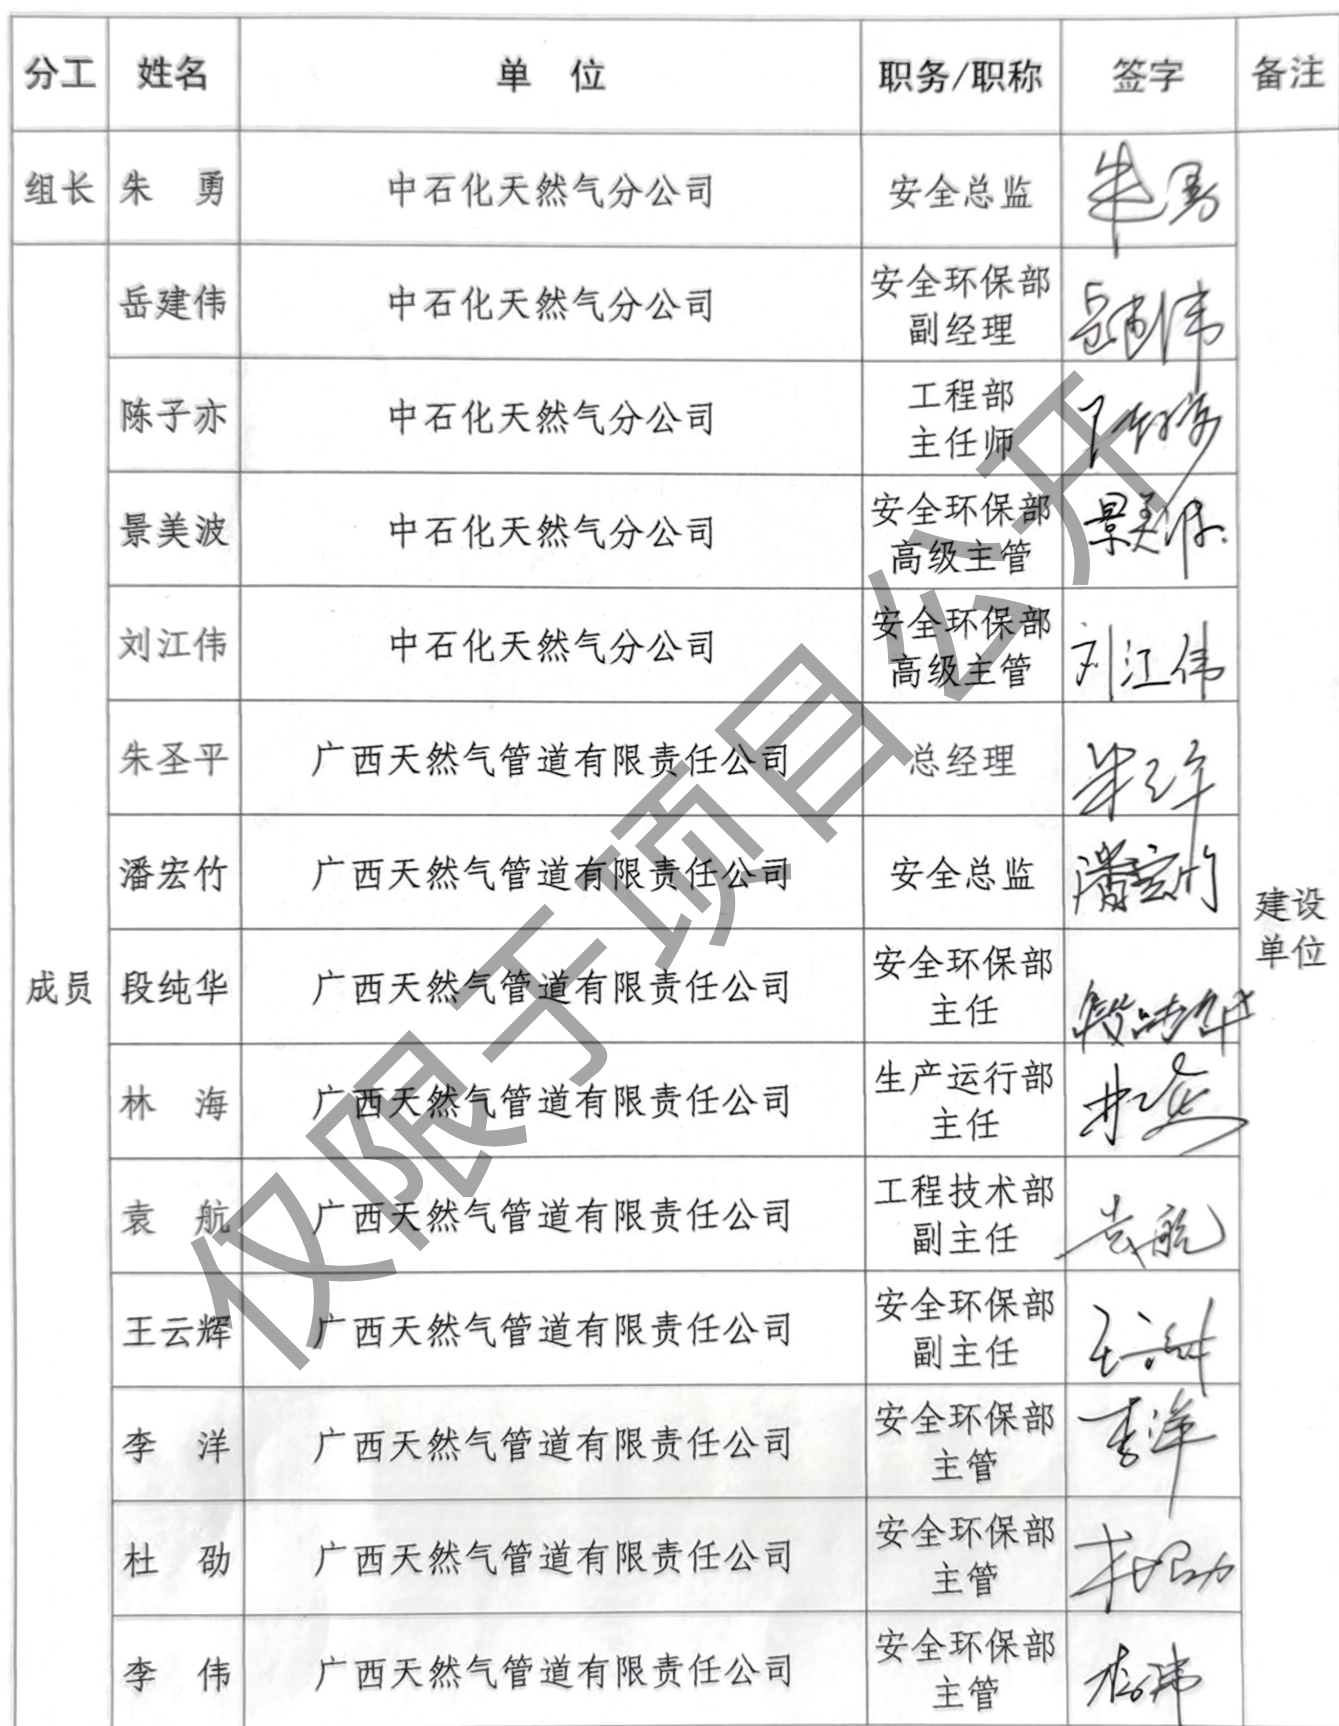 分工 姓名 单 位 职务/职称 签字 备注
组长 朱 勇 中石化天然气分公司 安全总监 朱勇
岳建伟 中石化天然气分公司 安全环保部
副经理 岳建伟
陈子亦 中石化天然气分公司 工程部
主任师
景美波 中石化天然气分公司 安全环保部
高级主管 景美波
刘江伟 中石化天然气分公司 安全环保部
高级主管 刘江伟
朱圣平 广西天然气管道有限责任公司 总经理 朱圣平
潘宏竹 广西天然气管道有限责任公司 安全总监 潘宏竹
建设
单位
成员 段纯华 广西天然气管道有限责任公司 安全环保部
主任 段纯华
林 海 广西天然气管道有限责任公司 生产运行部
主任 林海
袁 航 广西天然气管道有限责任公司 工程技术部
副主任 袁航
王云辉 广西天然气管道有限责任公司 安全环保部
副主任 王云辉
李 洋 广西天然气管道有限责任公司 安全环保部
主管 李洋
杜 劭 广西天然气管道有限责任公司 安全环保部
主管 杜劭
李 伟 广西天然气管道有限责任公司 安全环保部
主管 李伟
仅限于项目公开